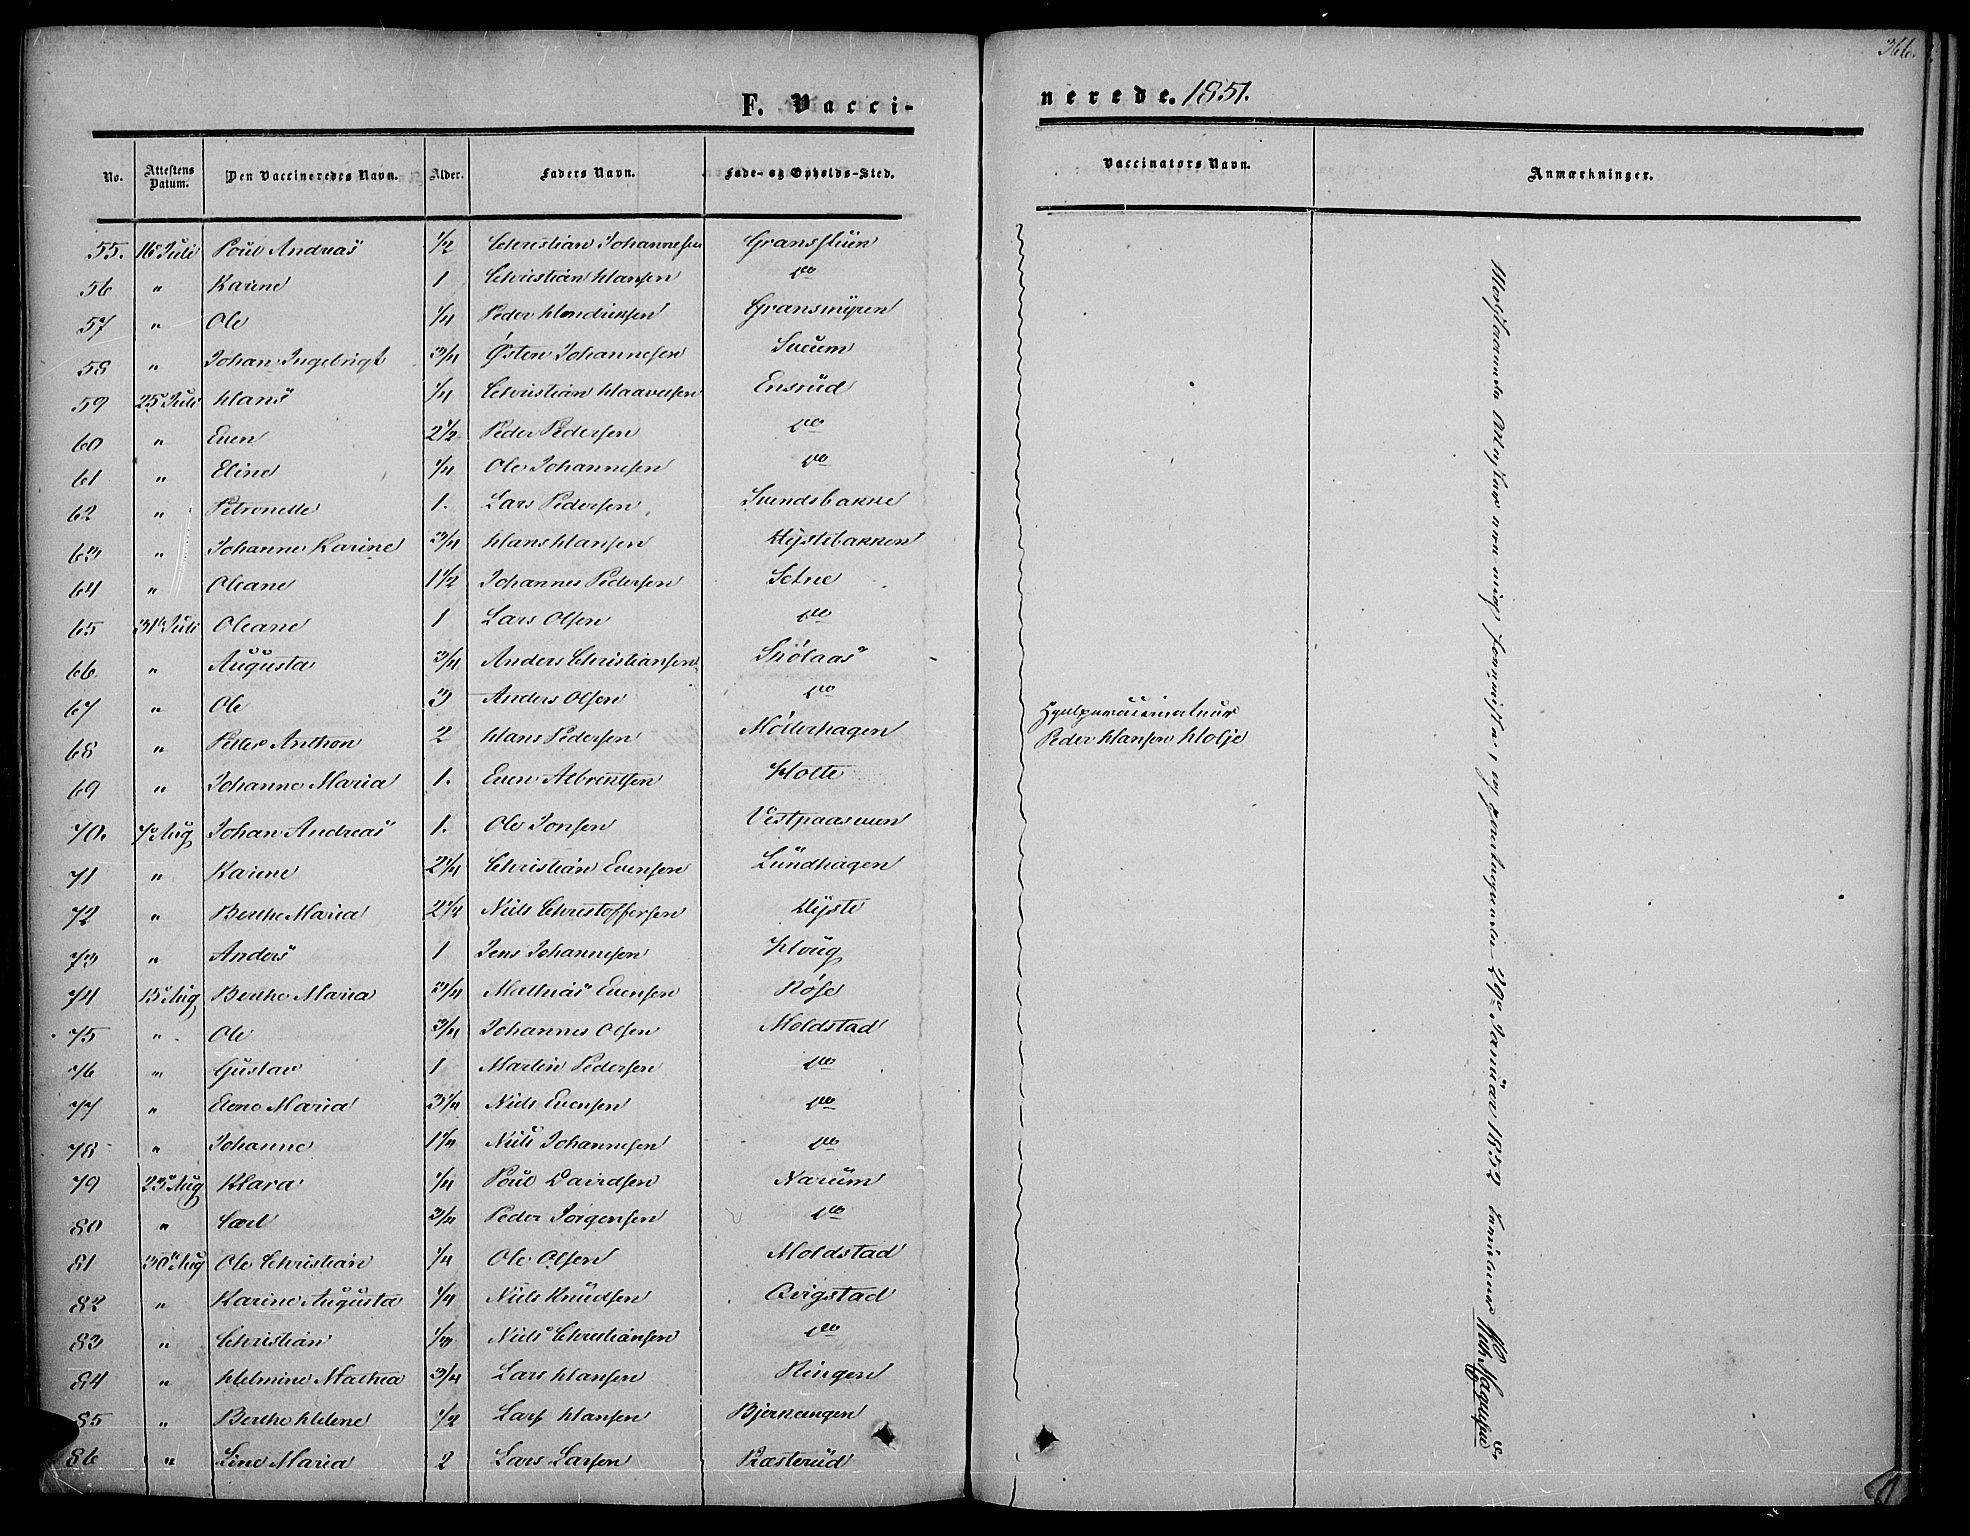 366.
F. Vaccinerede. 1851.
No. Attestens Datum. Den Vaccineredes Navn. Alder. Faders Navn. Føde- og Opholds-Sted. Vaccinators Navn. Anmærkninger.
55. 16 Juli Poul Andreas 1/2 Christian Johannesen
56 " Karine 1 Christian Hansen do
57 " Ole 1/4 Peder Hendriksen Gransmyren
58 " Johan Ingebrigt 3/4 Østen Johannesen
59 25 Juli Hans 1/4 Christian Haavelsen Ensrud
60 " Even 2 1/2 Peder Pedersen do
61 " Eline 1/4 Ole Johannesen do
62 " Petronelle 1. Lars Pedersen Svendsbakke
63 " Johanne Karine 3/4 Hans Hansen Hystebakken
64 " Oleane 1 1/2 Johannes Pedersen
65 31 Juli Oleane 1 Lars Olsen do
66 " Augusta 3/4 Anders Christiansen Skolaas
67 " Ole 3 Anders Olsen do
68 " Petter Anthon 2 Hans Pedersen Møllerhagen Peder Hansen Holje
69 " Johanne Maria 1. Even Albretsen Holte
70. 7 Aug Johan Andreas 1. Ole Jonsen
71 " Karine 2 1/4 Christian Evensen Lundhagen
72 " Berthe Maria 2 1/2 Niels Christoffersen Hyste
73 " Anders 1 Jens Johannesen Houg
74 15 Aug Berthe Maria 3/4 Mathias Evensen
75 " Ole 3/4 Johannes Olsen Moldstad
76 " Gustav 1 Martin Pedersen do
77 " Elene Maria 3 1/4 Niels Evensen do
78 " Johanne 1 1/4 Niels Johannesen do
79 23 Aug Klara 1/4 Poul Davidsen Narum
80 " Carl 3/4 Peder Jørgensen do
81 30 Aug Ole Christian 1/4 Ole Olsen Moldstad
82 " Karine Augusta 1/4 Niels Knudsen Bergstad
83 " Christian 1/3 Niels Christiansen do
84 " Helmine Mathea 3/4 Lars Hansen Ringen
85 " Berthe Helene 1/2 Lars Hansen
86 " Line Maria 2 Lars Larsen Præsterud
Januar 1852